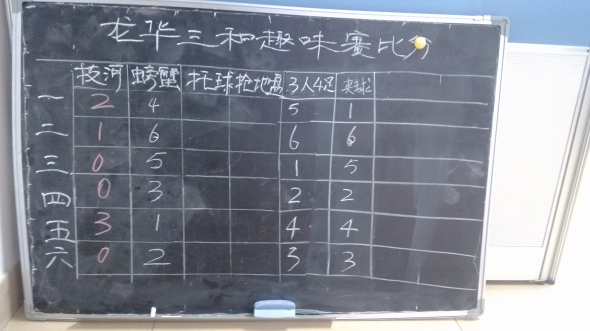 龙华三和趣味赛比分
技河 螃蟹 托球 抢地盘 3人4足 夹球
一 2 4 5 1
二 1 6 6 6
三 0 5 1 5
四 0 3 2 2
五 3 1 4 4
六 0 2 3 3